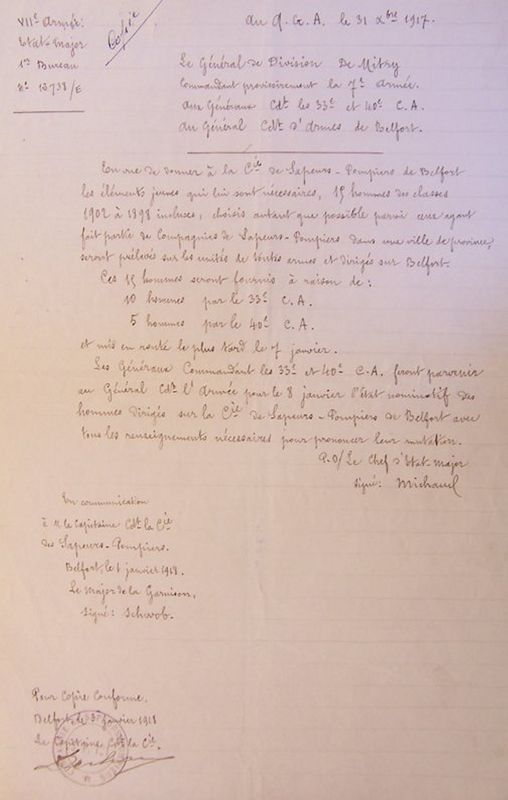 VIIe Armée.
Etat-Major
1er Bureau
No 15738/E
Copie
Au Q.G.A. le 31 Xbre 1917.
Le Général de Division De Mitry
Commandant provisoirement la 7e Armée.
aux Généraux Cdt les 33e et 40e C.A.
au Général Cdt d'Armes de Belfort.
En vue de donner à la Cie de Sapeurs-Pompiers de Belfort
les éléments jeunes qui lui sont nécessaires, 15 hommes des classes
1902 à 1898 incluses, choisis autant que possible parmi ceux ayant
fait partie de Compagnies de Sapeurs-Pompiers dans une ville de province,
seront prélevés sur les unités de toutes armes et dirigés sur Belfort.
Ces 15 hommes seront fournis à raison de :
10 hommes par le 33e C.A.
5 hommes par le 40e C.A.
et mis en route le plus tard le 7 janvier.
Les Généraux Commandant les 33e et 40e C.A. feront parvenir
au Général Cdt l'Armée pour le 8 janvier l'état nominatif des
hommes dirigés sur la Cie de Sapeurs-Pompiers de Belfort avec
tous les renseignements nécessaires pour prononcer leur mutation.
P.O/Le Chef d'Etat-Major
signé: Michaud
En communication
à M. le Capitaine Cdt la Cie
des Sapeurs-Pompiers.
Belfort, le 1 janvier 1918.
Le Major de la Garnison,
signé: Schwob.
Pour Copie Conforme.
Belfort le 3 janvier 1918
Le Capitaine Cdt la Cie.